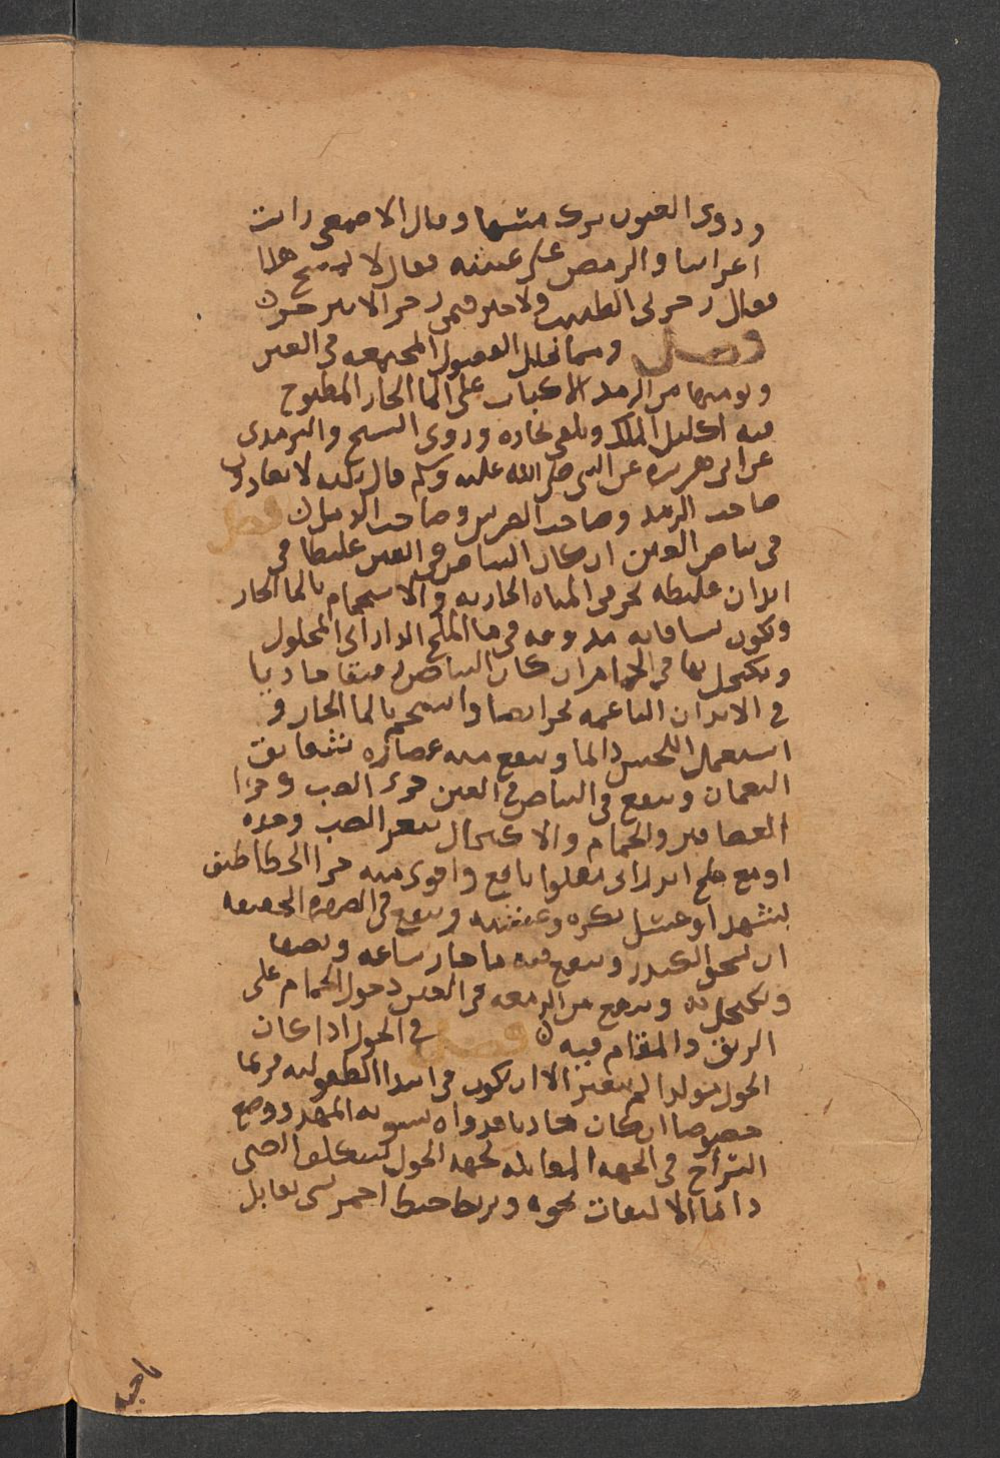 ودوى العيون ترك مسها وقال الاصمعي رايت
اعرابيا والرمص على عينيه فقال لا تمسح هذا
فقال زجرني الطبيب ولا خير فيمن زجر الا ينزجر
فصل ومما يحلل الفضول المجتمعه في العين
ويومنها من الرمد الاكباب على الما الحار المطبوخ
فيه اكليل الملك ويلقى بخاره وروى والترمدى
عن ابي هريره عن النبي صلى الله عليه وسلم قال ثلثه لا يعادون
صاحب الرمد وصاحب الضرس وصاحب الدمل فصل
في بياض العين ان كان البياض في العين غليظا في
ابدان غليظه المياه الحاره والاستحمام بالما الحار
ويكون مدوفه في ما الملح الداراني المحلول
ويكتحل بها في الحمام وان كان البياض
في الابدان الناعمه واستحم بالما الحار و
استعمال وينفع منه عصاره شقايق
النعمان وينفع في البياض في العين خرء الضب وخرا
العصافير والحمام والاكتحال ببعر الضب وحده
او مع ملح اندراني مقلوا نافع واقوى منه خرا الخطاطيف
بشهد او عسل بكره وعشيه وينفع في
ان ساعه ويصفا
ويكتحل به وينفع من الدمعه في العين دخول الحمام على
الريق والمقام فيه فصل في الحول اذا كان
الحول مولدا لم يتغير الا ان يكون في ابتدا الطفوليه فربما
خصوصا ان كان حادثا فدواه تسويه المهد ووضع
السراج في الجهه المقابله لجهه الحول ليتكلف الصبي
دايما الالتفات نحوه ويربط خيط احمر يقابل
ناحيه